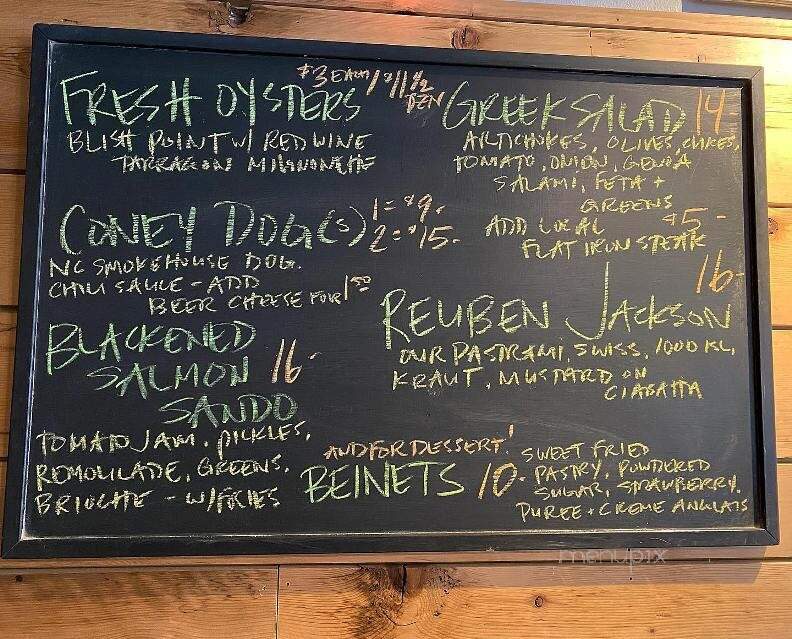 FRESH OYSTERS $3 EACH / $11 1/2 DZN
BLISH POINT W/ RED WINE
TARRAGON MIGNONETTE
CONEY DOG(S) 1 = $9.-
2 = $15.-
NC SMOKEHOUSE DOG.
CHILI SAUCE - ADD
BEER CHEESE FOR 1 50
BLACKENED
SALMON 16-
SANDO
TOMATO JAM. PICKLES,
REMOULADE, GREENS,
BRIOCHE - W/FRIES
GREEK SALAD 14-
ARTICHOKES, OLIVES, CUKES,
TOMATO, ONION, GENOA
SALAMI, FETA +
GREENS
ADD LOCAL $5-
FLAT IRON STEAK
16-
REUBEN JACKSON
OUR PASTRAMI, SWISS, 1000 ISL,
KRAUT, MUSTARD ON
CIABATTA
AND FOR DESSERT!
BEINETS 10-
SWEET FRIED
PASTRY, POWDERED
SUGAR, STRAWBERRY.
PUREE + CREME ANGLAIS
menupix